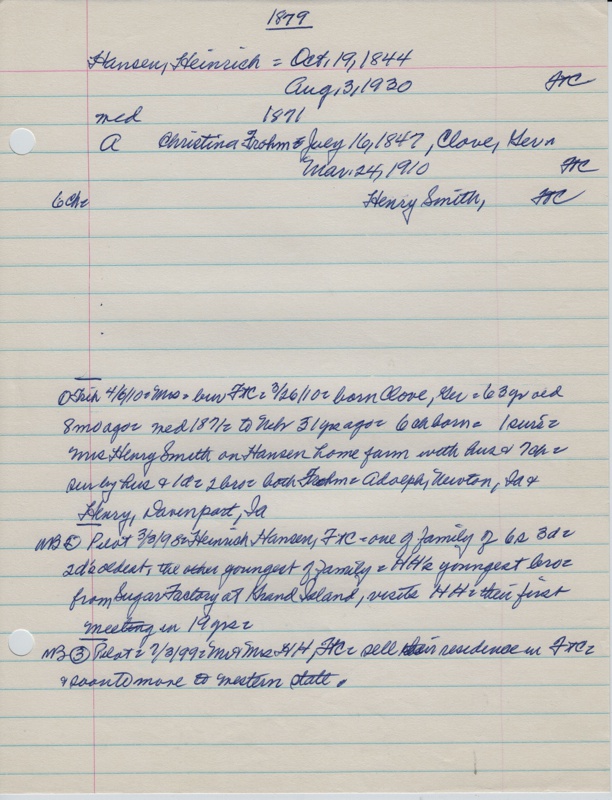 1879
Hansen, Heinrich = Oct, 19, 1844
Aug, 3, 1920 FtC
med 1871
A Christina Frohm = July 16, 1847, Clove, Ger =
Mar. 24, 1910 FtC
6 ch = Henry Smith, FtC
① Trib 4/6/10 = Mrs = bur FtC = 3/26/10 = born Clove, Ger = 63 yr old
8 mo ago = med 1871 = to Nebr 31 yrs ago = 6 ch born = 1 surv =
Mrs Henry Smith on Hansen home farm with hus & 7 ch =
sur by hus & 1d = 2 bro = both Frohm = Adolph, Newton, Ia &
Henry, Davenport, Ia
NB ② Pilot 3/3/98 = Heinrich Hansen, FtC = one of family of 6s 3d =
2d oldest, the other youngest of family = HH's youngest bro =
from Sugar Factory at Grand Island, visits HH = their first
meeting in 19 yrs =
NB ③ Pilot = 7/3/99 = Mr & Mrs HH, FtC = sell their residence in FtC =
& soon to move to western state.